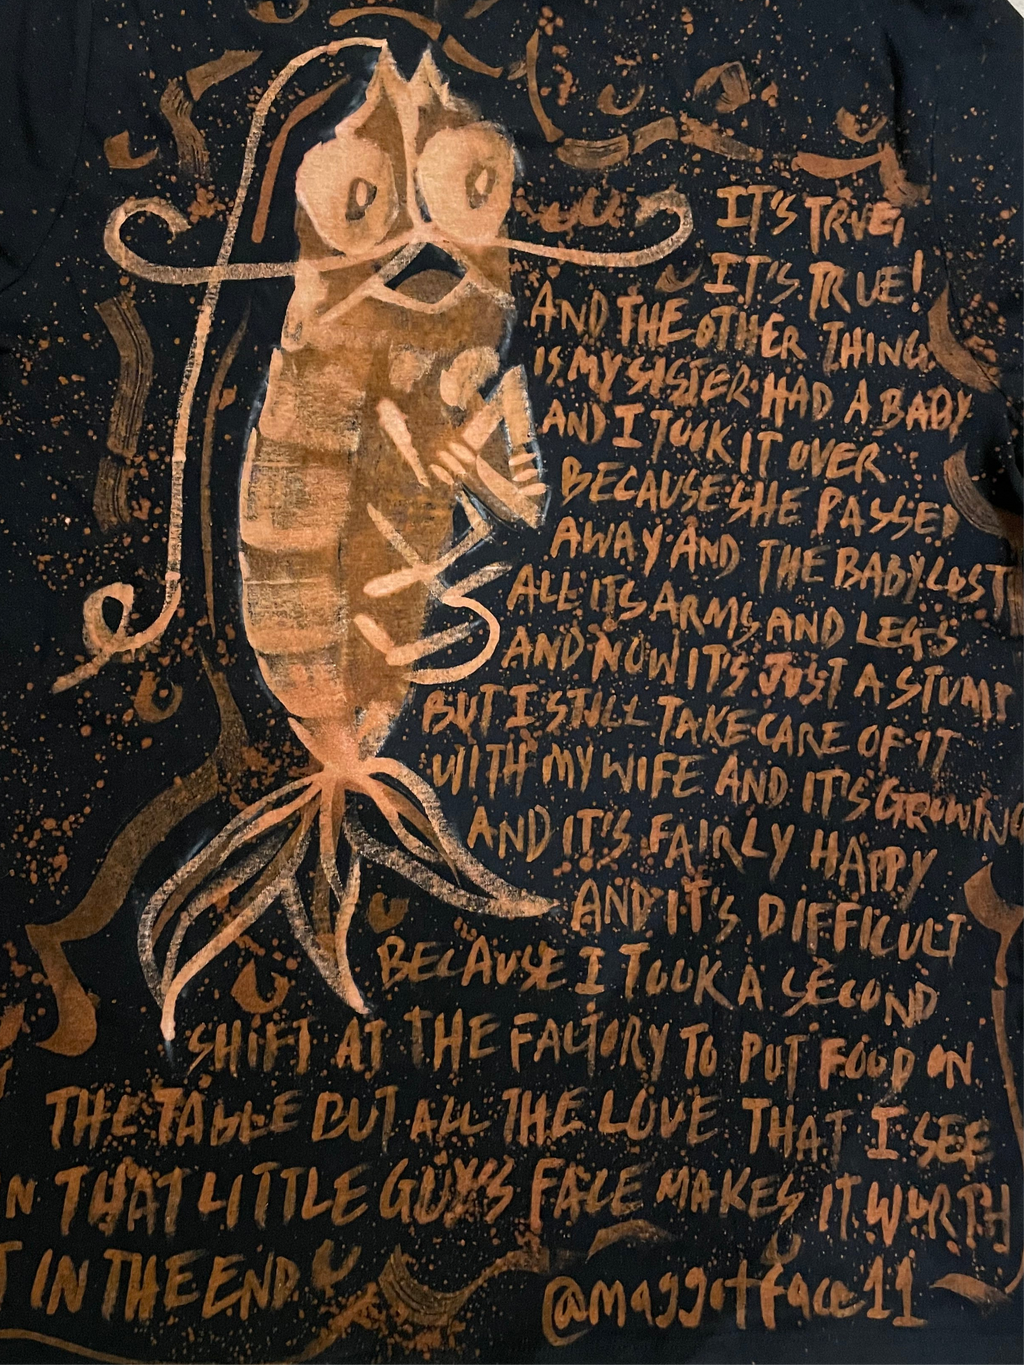 IT'S TRUE,
IT'S TRUE!
AND THE OTHER THING
IS MY SISTER HAD A BABY
AND I TOOK IT OVER
BECAUSE SHE PASSED
AWAY AND THE BABY LOST
ALL ITS ARMS AND LEGS
AND NOW IT'S JUST A STUMP
BUT I STILL TAKE CARE OF IT
WITH MY WIFE AND IT'S GROWING
AND IT'S FAIRLY HAPPY
AND IT'S DIFFICULT
BECAUSE I TOOK A SECOND
SHIFT AT THE FACTORY TO PUT FOOD ON
THE TABLE BUT ALL THE LOVE THAT I SEE
N THAT LITTLE GUY'S FACE MAKES IT WORTH
T IN THE END
@maggotface11